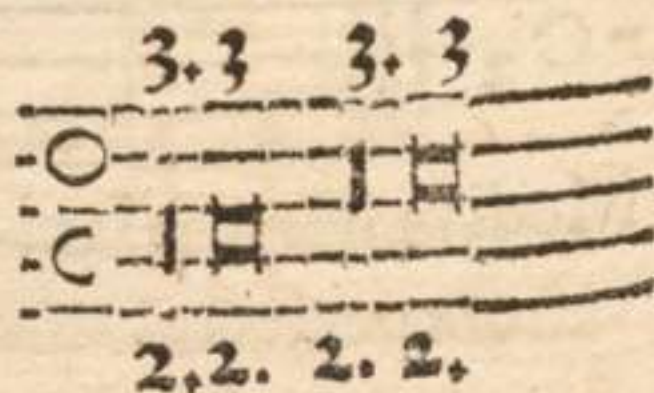 3. 3 3. 3
2. 2. 2. 2.